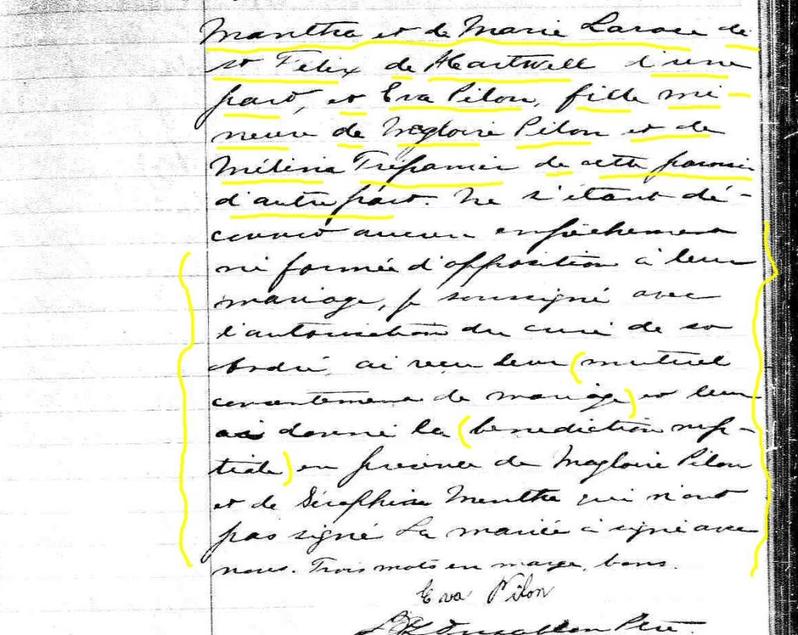 Mantha et de Marie Larose de
St Félix de Hartwell d'une
part, et Eva Pilon, fille mi
neure de Magloire Pilon et de
Mélina Trépanier de cette paroisse
d'autre part. Ne s'étant dé-
couvert aucun empêchement
ni formée d'opposition à leur
mariage, je soussigné avec
l'autorisation du curé de St
André, ai reçu leur (mutuel
consentement de mariage) et leur
ai donné la (bénédiction nup-
tiale) en présence de Magloire Pilon
et de Séraphine Mantha qui n'ont
pas signé La mariée a signé avec
nous. Trois mots en marge, bons.
Eva Pilon
Ptre.